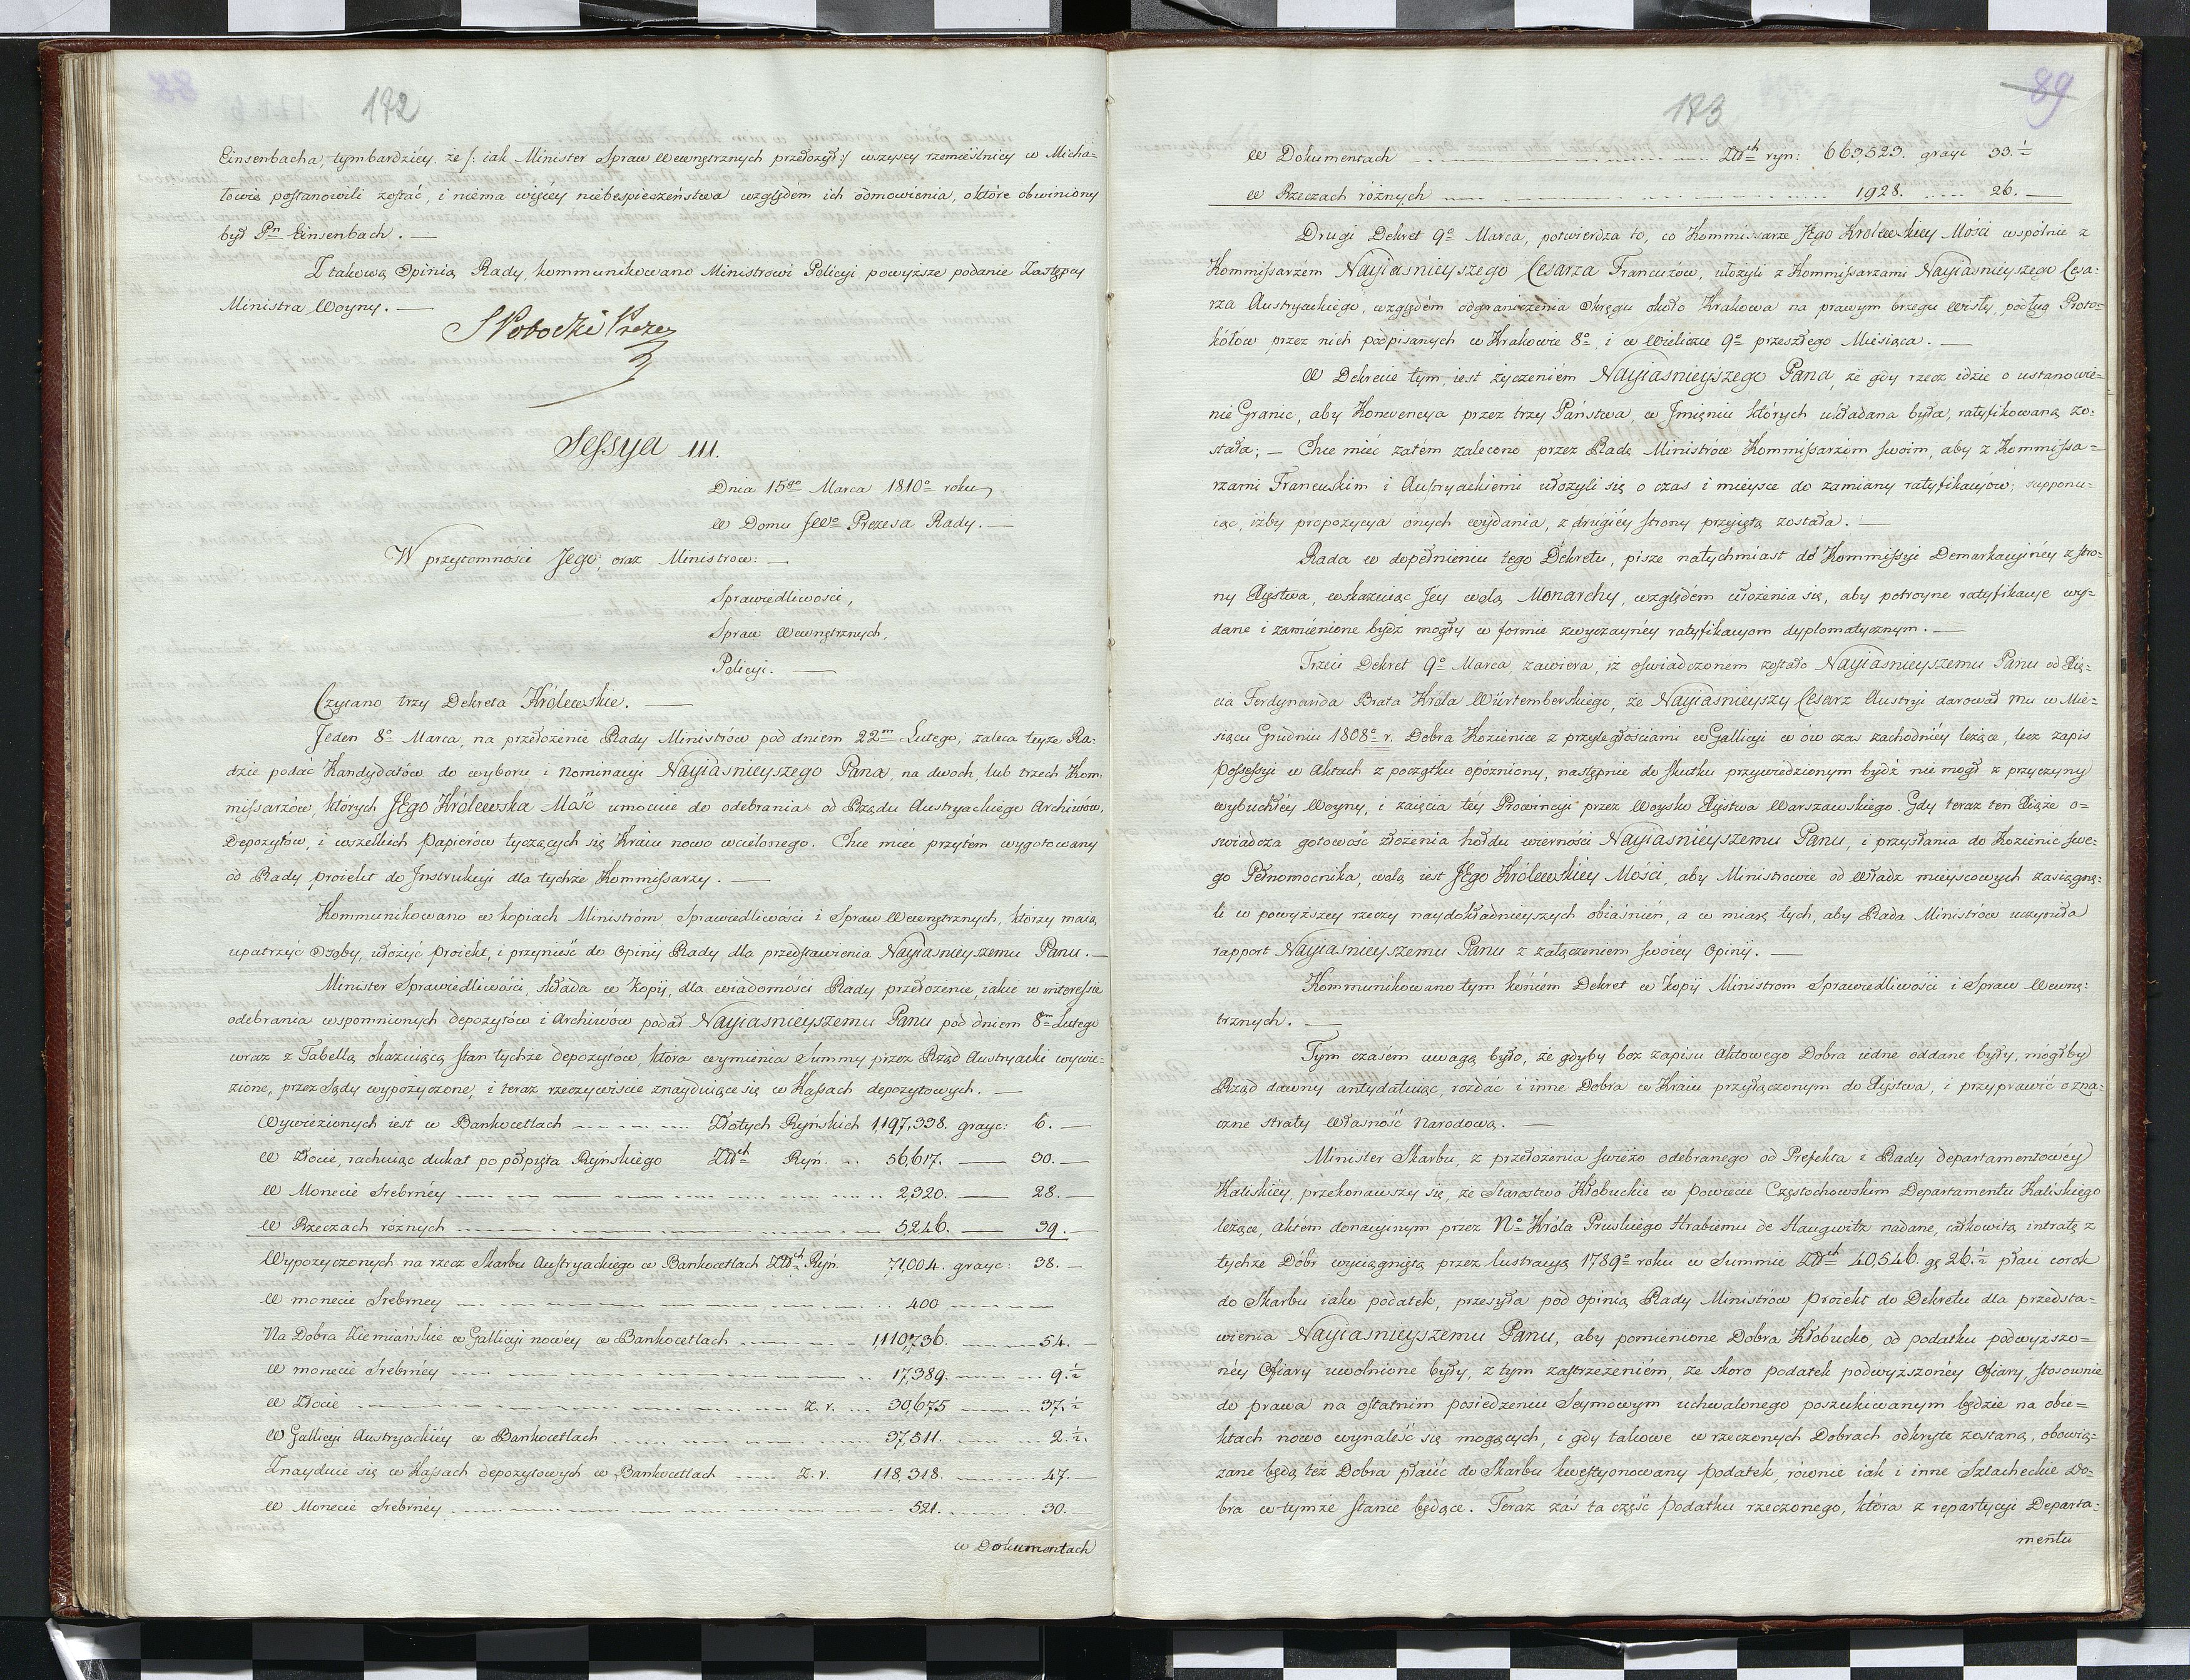 172
Einsenbacha, tymbardziéy, że /: iak Minister Spraw Wewnętrznych przełożył :/ wszyscy rzemieślnicy w Micha=
łowie postanowili zostać, i niema więcéy niebespieczeństwa względem ich odmowienia, o które obwiniony
był Pn Einsenbach. —
Z takową Opinią Rady, kommunikowano Ministrowi Policyi powyższe podanie Zastępcy
Ministra Woyny. —
Sessya III.
Dnia 15go Marca 1810o roku,
W Domu JWo Prezesa Rady. —
W przytomności Jego, oraz Ministrow: —
Sprawiedliwości,
Spraw Wewnętrznych,
Policyi. —
Czytano trzy Dekreta Królewskie. —
Jeden 8o Marca, na przełożenie Rady Ministrów pod dniem 22m Lutego, zaleca teyże Ra=
dzie podać Kandydatów do wyboru i nominacyi Nayiasnieyszego Pana, na dwoch, lub trzech Kom=
missarzów, których JEgo Królewska Mość umocuie do odebrania od Rządu Austryackiego Archiwów,
Depozytów, i wszelkich Papierów tyczących się Kraiu nowo wcielonego. Chce mieć przytém wygotowany
od Rady proiekt do Instrukcyi dla tychże Kommissarzy. —
Kommunikowano w kopiach Ministróm Sprawiedliwości i Spraw Wewnętrznych, którzy maią
upatrzyć Osoby, ułożyć proiekt, i przynieść do Opinij Rady dla przedstawienia Nayiasnieyszemu Panu. —
Minister Sprawiedliwości, składa w Kopij, dla wiadomości Rady przełożenie, iakie w interessie
odebrania wspomnionych depozytów i Archiwów podał Nayiasnieyszemu Panu pod dniem 8m Lutego
wraz z Tabellą okazuiącą stan tychże depozytów, która wymienia Summy przez Rząd Austryacki wywie=
zione, przez Sądy wypożyczone, i teraz rzeczywiscie znayduiące się w Kassach depozytowych. —
Wywiezionych iest w Bankocetlach — Złotych Ryńskich 1,197,338. grayc: 6. —
W Złocie, rachuiąc dukat po półpięta Ryńskiego Złłch Ryń. 56,617. — 30. —
W Monecie Srebrnéy — 2,320. — 28. —
W Rzeczach różnych — 5,246. — 39. —
Wypożyczonych na rzecz Skarbu Austryackiego w Bankocetlach Złłch Ryń. 71,004. grayc: 38. —
W monecie Srebrnéy — 400 —
Na Dobra Ziemiańskie w Gallicyi nowéy w Bankocetlach — 1,110,736. — 54. —
W monecie Srebrnéy — 17,389. — 9.½
W Złocie — Z. r. 30,675 — 37.½
W Gallicyi Austryackiéy w Bankocetlach — 37,511. — 2.½.
Znayduie się w Kassach depozytowych w Bankocetlach — Z. r. 118,318. — 47. —
W Monecie Srebrnéy — 521. — 30. —
w Dokumentach
173
89
W Dokumentach — Złłch ryn: 663,523. grayc 33.½
W Rzeczach różnych — 1928. — 26. —
Drugi Dekret 9o Marca, potwierdza to, co Kommissarze JEgo Królewskiey Mości wspólnie z
Kommissarzém Nayiasnieyszego Cesarza Francuzów, ułożyli z Kommissarzami Nayiasnieyszego Cesa=
rza Austryackiego, względem odgraniczenia Okręgu około Krakowa na prawym brzegu Wisły, podług Proto=
kółow przez nich podpisanych w Krakowie 8o i w Wieliczce 9o przeszłego Miesiąca. —
W Dekrecie tym, iest życzeniem Nayiasnieyszego Pana, że gdy rzecz idzie o ustanowie=
nie Granic, aby Konwencya przez trzy Państwa, w Imięniu których układana była, ratyfikowaną zo=
stała; — Chce mieć zatém zalecono przez Radę Ministrów Kommissarzóm swoim, aby z Kommissa=
rzami Francuskim i Austryackiemi ułożyli się o czas i mieysce do zamiany ratyfikacyów, supponu=
iąc, iżby propozycya onych wydania, z drugiéy strony przyiętą została. —
Rada w dopełnieniu tego Dekretu, pisze natychmiast do Kommissyi Demarkacyinéy z stro=
ny Xięstwa, wskazuiąc Jéy wolą Monarchy, względem ułożenia się, aby potroyne ratyfikacye wy=
dane i zamienione bydź mogły w formie zwyczaynéy ratyfikacyom dyplomatycznym. —
Trzeci Dekret 9o Marca, zawiera, iż oświadczonem zostało Nayiasnieyszemu Panu od Xię=
cia Ferdynanda Brata Króla Würtemberskiego, że Nayiasnieyszy Cesarz Austryi darował mu w Mie=
siącu Grudniu 1808o r. Dobra Kozienice z przyległościami w Gallicyi w ów czas zachodniéy leżące, lecz zapis
possessyi w Aktach z początku opózniony, następnie do skutku przywiedzionym bydź nie mogł z przyczyny
wybuchłéy Woyny, i zaięcia téy Prowincyi przez Woysko Xięstwa Warszawskiego. Gdy teraz ten Xiąże o=
świadcza gotowość złożenia hołdu wierności Nayiasnieyszemu Panu, i przysłania do Kozienic swe=
go Pełnomocnika, wolą iest JEgo Królewskiey Mości, aby Ministrowie od Władz mieyscowych zasięgnę=
li w powyższey rzeczy naydokładnieyszych obiaśnień, a w miarę tych, aby Rada Ministrów uczyniła
rapport Nayiasnieyszemu Panu z załączeniem swoiéy Opinij. —
Kommunikowano tym końcém Dekret w Kopij Ministrom Sprawiedliwości i Spraw Wewnę=
trznych. —
Tym czasém uwagą było, że gdyby bez zapisu Aktowego Dobra iedne oddane były, mógłby
Rząd dawny antydatuiąc, rozdać i inne Dobra w Kraiu przyłączonym do Xięstwa, i przyprawić o zna=
czne straty Własność Narodową. —
Minister Skarbu, z przełożenia świeżo odebranego od Prefekta i Rady departamentowéy
Kaliskiéy, przekonawszy się, że Starostwo Kłobuckie w Powiecie Częstochowskim Departamentu Kaliskiego
leżące, aktém donacyinym przez No Króla Pruskiego Hrabiemu de Haugwitz nadane, całkowitą intratę z
tychże Dóbr wyciągniętą przez lustracyą 1789o roku w Summie Złłch 40,546. gę 26.½ płaci corok
do Skarbu iako podatek, przesyła pod opinią Rady Ministrów Proiekt do Dekretu dla przedsta=
wienia Nayiasnieyszemu Panu, aby pomienione Dobra Kłobucko, od podatku podwyższo=
néy Ofiary uwolnione były, z tym zastrzeżeniém, że skoro podatek podwyższonéy Ofiary, stosownie
do prawa na ostatnim posiedzeniu Seymowym uchwalonego poszukiwanym będzie na obie=
ktach nowo wynaleść się mogących, i gdy takowe w rzeczonych Dobrach odkryte zostaną, obowią=
zane będą też Dobra płacić do Skarbu kwestyonowany podatek, równie iak i inne Szlacheckie Do=
bra w tymże stanie będące. Teraz zaś ta część podatku rzeczonego, która z repartycyi Departa=
mentu